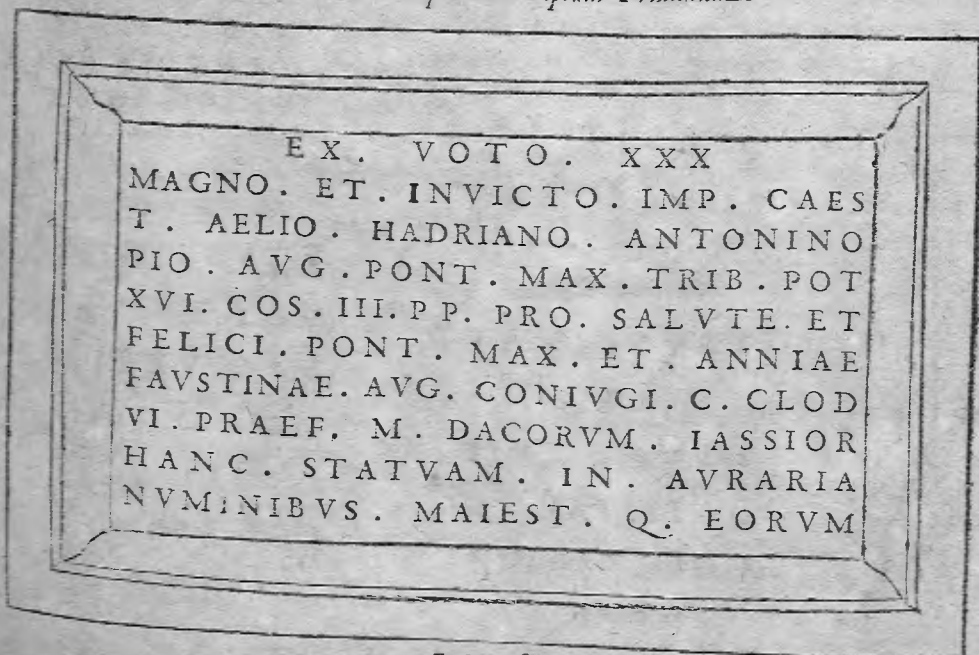 EX. VOTO. XXX
MAGNO. ET. INVICTO. IMP. CAES
T. AELIO. HADRIANO. ANTONINO
PIO. AVG. PONT. MAX. TRIB. POT
XVI. COS. III. P P. PRO. SALVTE. ET
FELICI. PONT. MAX. ET. ANNIAE
FAVSTINAE. AVG. CONIVGI. C. CLOD
VI. PRAEF. M. DACORVM. IASSIOR
HANC. STATVAM. IN. AVRARIA
NVMINIBVS. MAIEST. Q. EORVM